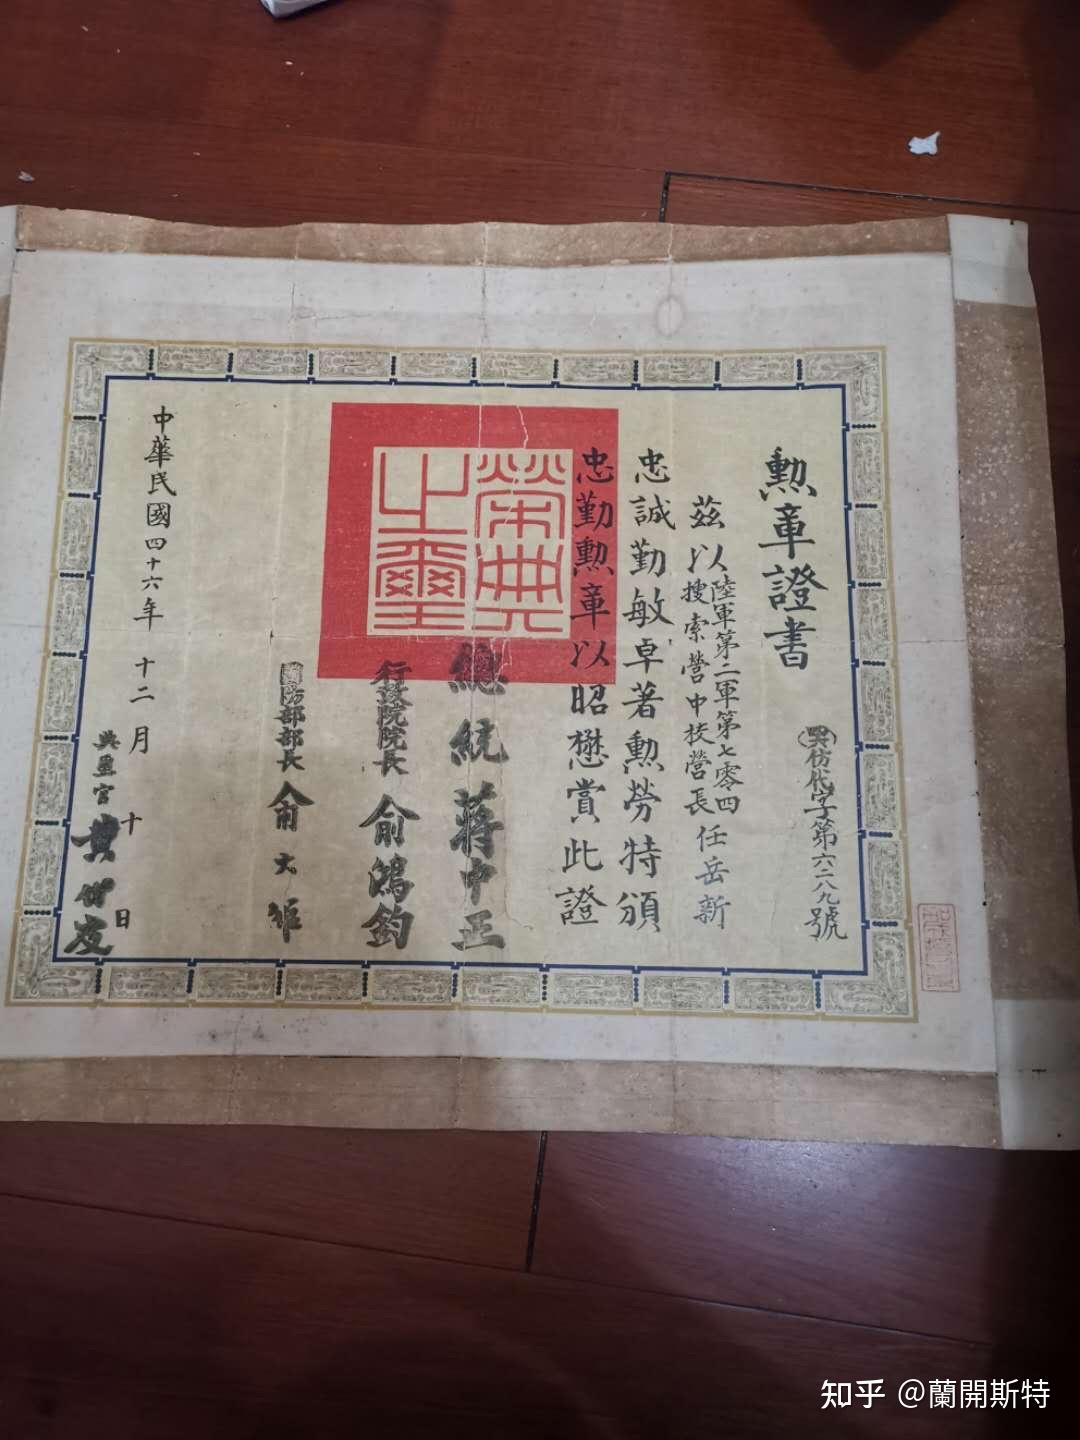 勲章證書
仿代字第六二八九號
茲以陸軍第二軍第七零四
搜索營中校營長任岳新
忠誠勤敏卓著勲勞特頒
忠勤勲章以昭懋賞此證
榮典之璽
總統蔣中正
行政院院長俞鴻鈞
國防部部長俞大維
中華民國四十六年十二月十日
典璽官
知乎 @蘭開斯特